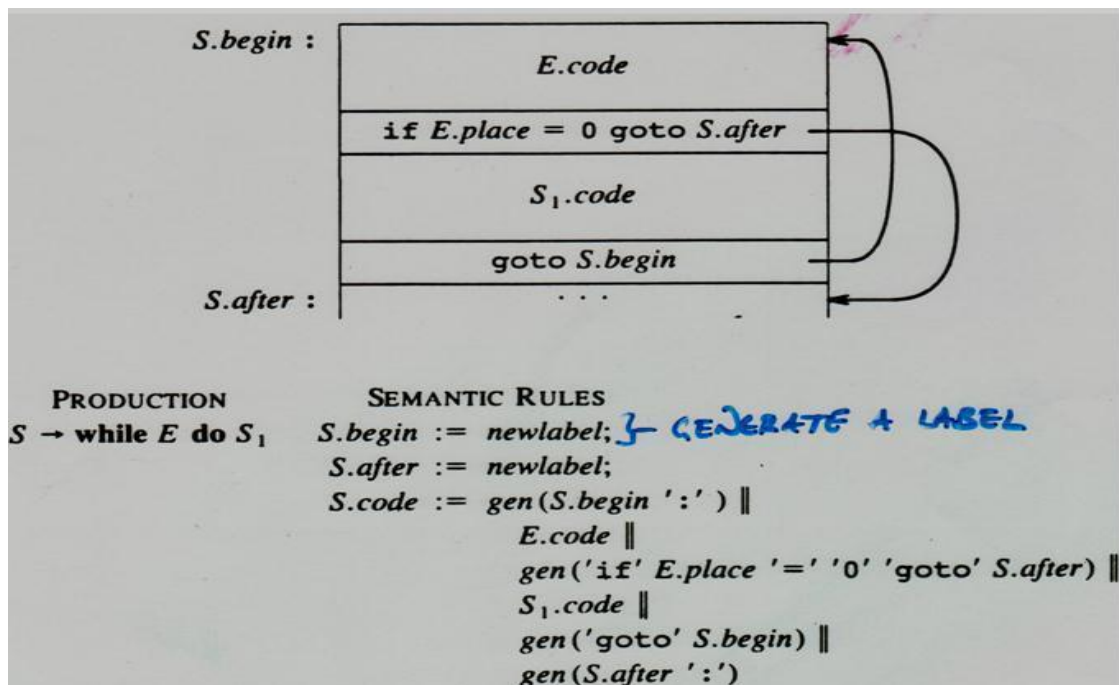 S.begin :
E.code
if E.place = 0 goto S.after
S₁.code
goto S.begin
S.after : . . .
PRODUCTION SEMANTIC RULES
S → while E do S₁ S.begin := newlabel; }- GENERATE A LABEL
S.after := newlabel;
S.code := gen(S.begin ':') ‖
E.code ‖
gen('if' E.place '=' '0' 'goto' S.after) ‖
S₁.code ‖
gen('goto' S.begin) ‖
gen(S.after ':')